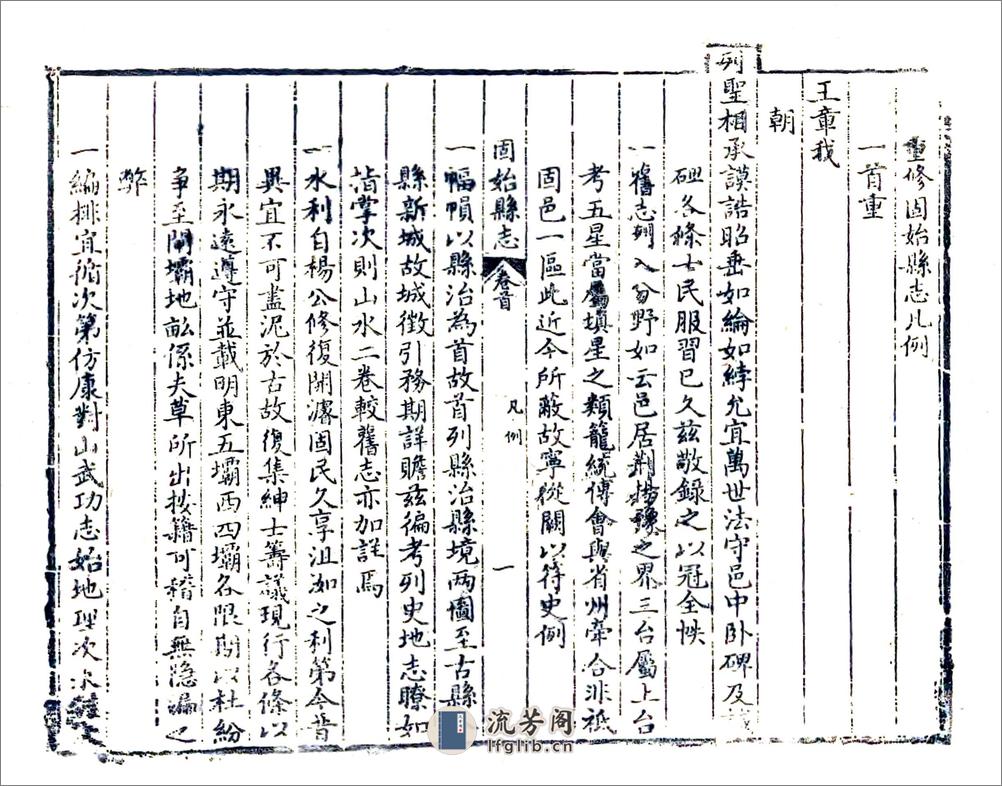 重修固始縣志凡例
一首重
王章我
朝
列聖相承謨誥昭垂如綸如綍允宜萬世法守邑中卧碑及
碑各條士民服習已久茲敬錄之以冠全帙
一舊志列入分野如云邑居荆揚豫之界三台屬上台
考五星當屬填星之類籠統傅會與省州牽合非衹
固邑一區此近今所蔽故寧從闕以符史例
固始縣志
卷首
凡例
一
一幅幀以縣治為首故首列縣治縣境两圖至古縣
縣新城故城徵引務期詳贍茲徧考列史地志瞭如
指掌次則山水二卷較舊志亦加詳焉
一水利自楊公修復開濬固民久享沮洳之利第今昔
異宜不可盡泥於古故復集紳士籌議現行各條以
期永遠遵守並載明東五壩西四壩各限期以杜紛
争至閘壩地畝係夫草所出按籍可稽自無隐漏之
弊
一編排宜循次第仿康對山武功志始地理次水
流芳阁
lfglib.cn